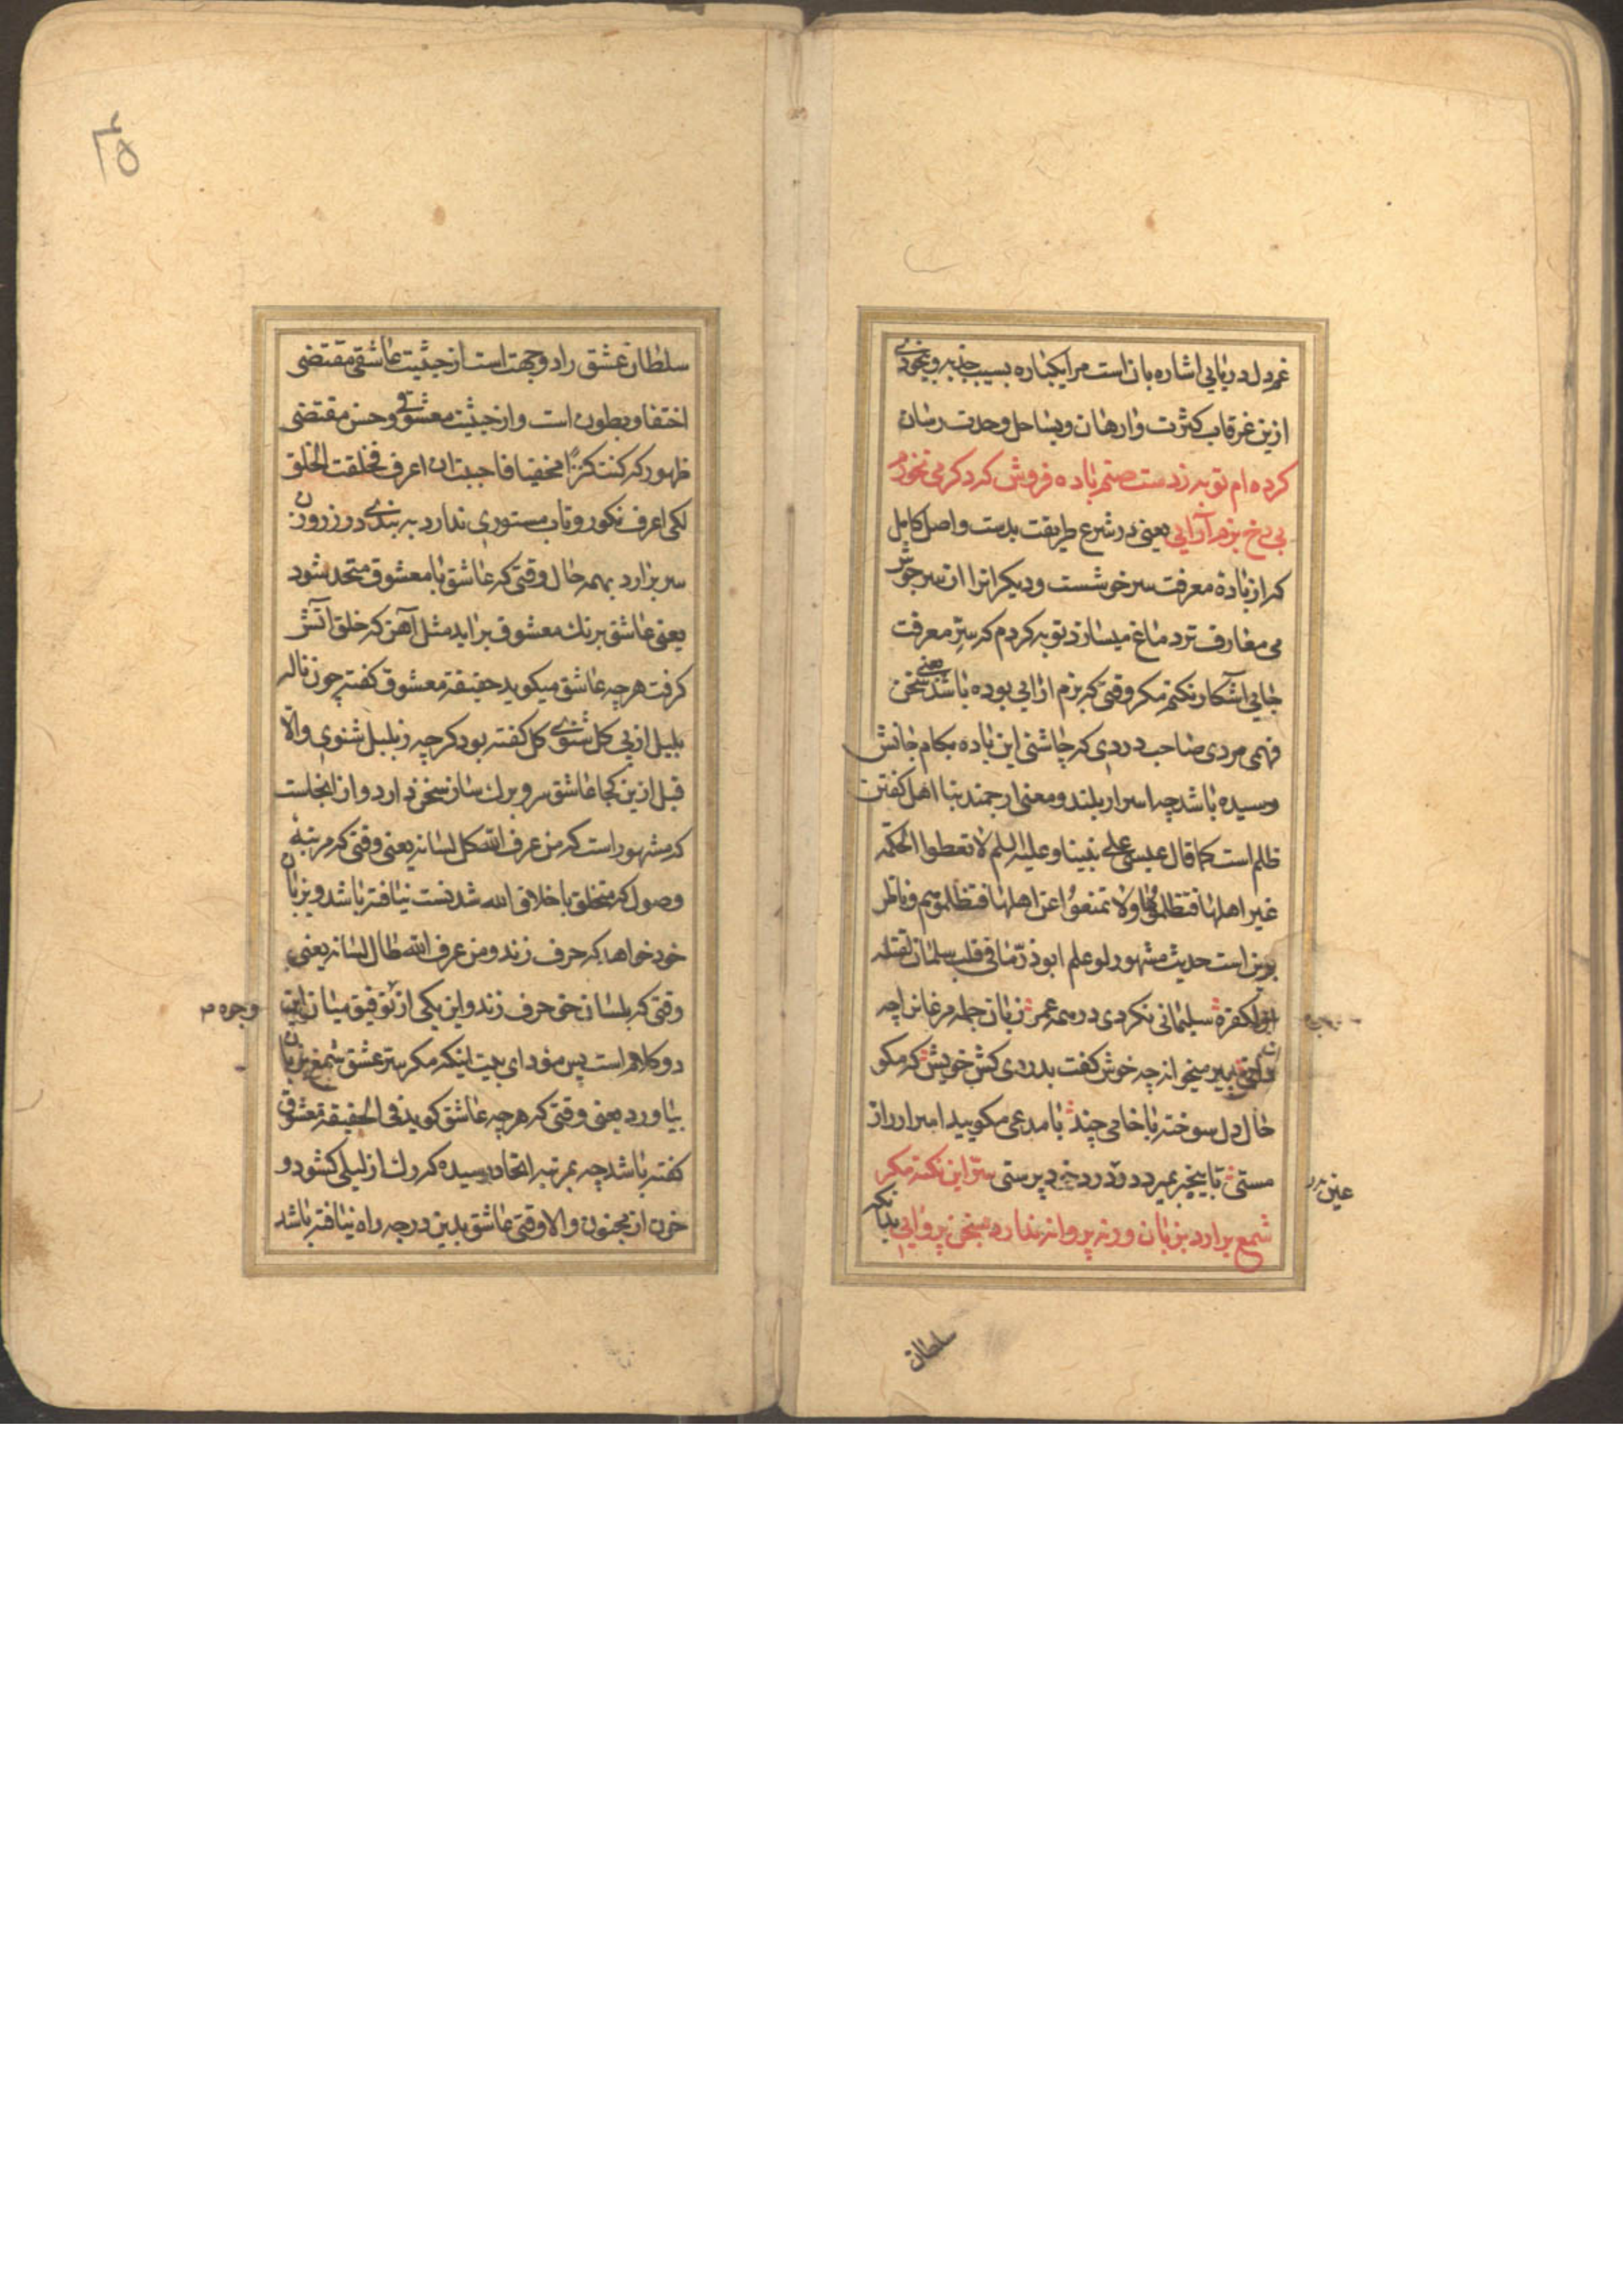 غم دل دریایی اشاره بان است مرا یکباره بسبب جذبه و بیخودی
ازین غرقاب کثرت وارهان و بساحل وحدت رسان
کرده ام توبه زدست صنم باده فروش که دکر می نخورم
بی رخ بزم آرایی یعنی در شرع طریقت بدست واصل کامل
که از بادهٔ معرفت سرخوشست و دیکرانرا از سرجوش
می معارف تر دماغ میسازد توبه کردم که سرّ معرفت
جایی آشکار نکنم مکر وقتی که بزم ارایی بوده باشد یعنی سخن
فهمی مردی صاحب دردی که چاشنی این باده بکام جانش
رسیده باشد چه اسرار بلند و معنی ارجمند بنا اهل کفتن
ظلم است کما قال عیسی علی نبینا و علیه السلم لا تعطوا الحکمه
غیر اهلها فتظلموها ولا تمنعوا عن اهلها فتظلموهم و ناظر
برین است حدیث مشهور لو علم ابوذر ما فی قلب سلمان لقتله
سلیمانی نکردی در همه عمر زبان جمله مرغانرا چه
چه خوش کفت بدردی کش خویش که مکو
حال دل سوخته با خامی چند با مدعی مکویید اسرار
مستی تا بیخبر بمیرد در درد خود پرستی سرّ این نکته مکر
شمع برارد بزبان ورنه پروانه ندارد بسخن پروایی بدانکه
عین
سلطان
۴۵
سلطان عشق را دو جهت است از حیثیت عاشقی مقتضی
اختفا و بطون است و از حیثیت معشوقی و حسن مقتضی
ظهور که کنت کنزاً مخفیا فاحببت ان اعرف فخلقت الخلق
لکی اعرف نکورو تاب مستوری ندارد به بندی در ز روزن
سر برارد بهمه حال وقتی که عاشق با معشوق متحد شود
یعنی عاشق برنک معشوق براید مثل آهن که خلق آتش
کرفت هرچه عاشق میکوید حقیقة معشوق کفته چون ناله
بلبل از پی کل شنوی کل کفته بود کرچه ز بلبل شنوی والّا
قبل ازین کجا عاشق سر و برک ساز سخن دارد و از انجاست
که مشهور است که من عرف الله کل لسانه یعنی وقتی که مرتبهٔ
وصول که متخلق باخلاق الله شدنست نیافته باشد و بزبان
خود خواهد که حرف زند و من عرف الله طال لسانه یعنی
وقتی که بلسان حق حرف زند و این یکی از توفیق میان این
دو کلام است پس مؤدای بیت اینکه مکر سرّ عشق شمع بزبان
بیاورد یعنی وقتی که هرچه عاشق کوید فی الحقیقة معشوق
کفته باشد چه بمرتبه اتحاد رسیده که رک از لیلی کشود و
خون از مجنون والا وقتی عاشق بدین درجه راه نیافته باشد
وجوه